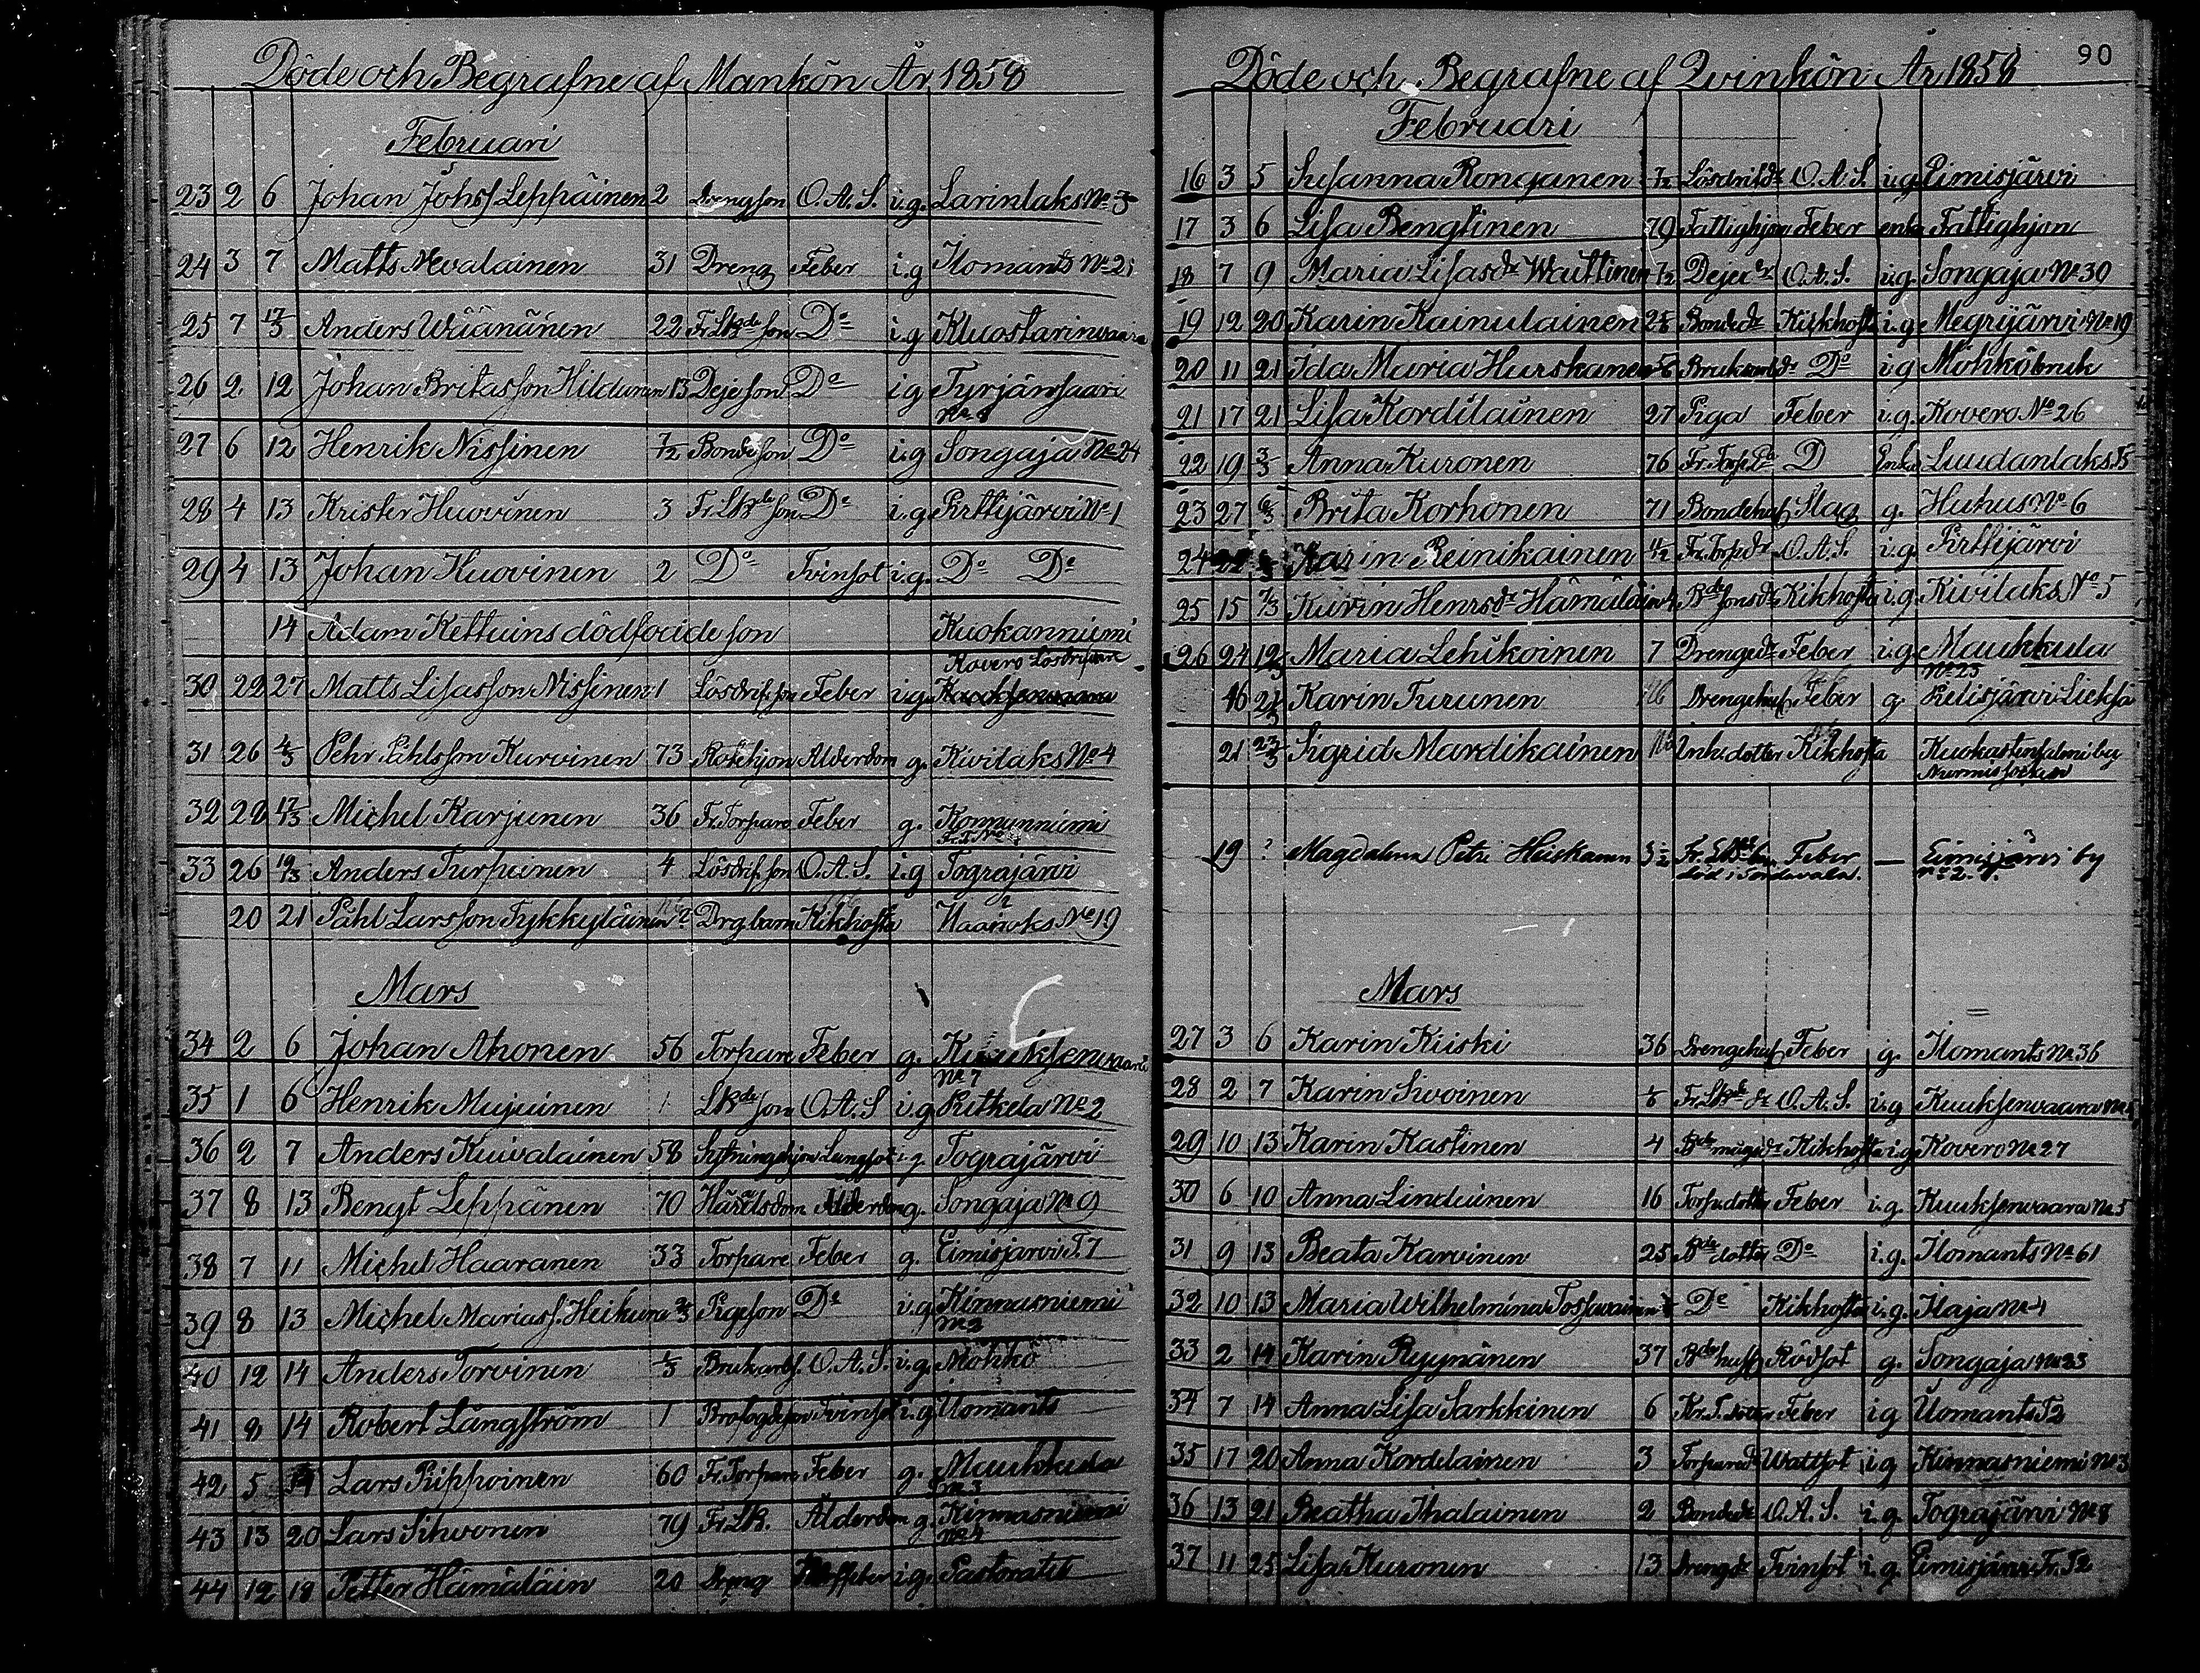 Döde och Begrafne af Mankön År 1858
Februari
23 2 6 Johan Johsf Leppäinen 2 drengson O.A.S. i.g. Larinlaks No 3
24 3 7 Matts Nevalainen 31 Dreng Feber i.g Ilomants No 21
25 7 17/3 Anders Wäänänen 22 Fr. Lkde son Do i.g Kluostarinvaara
26 2 12 Johan Britasson Hildunen 13 Dejeson Do i.g Tyrjänsaari
No 8
27 6 12 Henrik Nissinen 1/2 Bondeson Do i.g Songaja No 24
28 4 13 Krister Huovinen 3 Fr. Lkde son Do i.g. Pirttijärvi No 1
29 4 13 Johan Huovinen 2 Do Tvinsot i.g. Do Do
14 Adam Kettuins dödfödde son Kuokanniemi
30 22 27 Matts Lisasson Nissinen 1 Lösdrifsson Feber i.g. Kovero Lösdrifvare
31 26 4/3 Pehr Påhlsson Kurvinen 73 Rotehjon Alderdom g. Kivilaks No 4
32 28 17/3 Michel Karjunen 36 Fr. Torpare Feber g. Konnunniemi
33 26 19/3 Anders Turpeinen 4 Lösdrif. son O.A.S. i.g Tograjärvi
20 21 Påhl Larsson Tykkyläinen 2 Drg barn Kikhosta No 19
Mars
34 2 6 Johan Ahonen 56 Torpare Feber g. Kuuksenvaara
No 7
35 1 6 Henrik Mujuinen 1 Lkde son O.A.S i.g Putkela No 2
36 2 7 Anders Kuivalainen 58 Sytningshjon Lungsot g Tograjärvi
37 8 13 Bengt Leppänen 70 Alderdom g. Songaja No 9
38 7 11 Michel Haaranen 33 Torpare Feber g. Eimisjärvi T. 7
39 8 13 Michel Marias s. Heikura Pigeson Do i.g Kinnasniemi
No 2
40 12 14 Anders Torvinen Brukarb s. O.A.S. i.g. Möhkö
41 8 14 Robert Långström 1 Tvinsot i.g Ilomants
42 5 14 Lars Piipponen 60 Fr. Torpare Feber g. Maukkula
No 3
43 13 20 Lars Sihvonen 79 Fr. Lk. Ålderdom g. Kinnasniemi
No 4
44 12 18 Petter Hämäläin 20 Dreng i.g. Pastoratet
90
Döde och Begrafne af Qvinkön År 1858
Februari
16 3 5 Susanna Ronganen 1/2 Lösdrifdr O.A.S. i.g Eimisjärvi
17 3 6 Lisa Bengtinen 79 Fattighjon Feber enka Fattighjon
18 7 9 Maria Lisasdr Wauttinen 1/2 Dejedr O.A.S. i.g. Songaja No 30
19 12 20 Karin Kainulainen Bondedr Kikhosta i.g. Megrijärvi No 19
20 11 21 Ida Maria Hurskanen Brukarbdr Do i.g Möhköbruk
21 17 21 Lisa Kordilainen 27 Piga Feber i.g. Kovero No 26
22 19 3/3 Anna Kuronen 76 D Enka Luudanlaks
23 27 6/3 Brita Korhonen 71 Bondehuf Slag g. Huhus No 6
24 Karin Reinikainen Fr. Torpdr O.A.S. i.g. Pirttijärvi
25 15 7/3 Karin Henrsdr Hämäläinen Bdesonsdr Kikhosta i.g. Kivilaks No 5
26 24 12/3 Maria Lehikoinen 7 Drengedr Feber i.g. Maukkula
No 23
16 Karin Turunen Drengehuf Feber g. Pielisjärvi Lieksa
21 23/3 Sigrid Mardikainen Inh. dotter Kikhosta Kuokastensalmi by
Nurmis socken
19 ? Magdalena Petri Hiiskanen 3 1/2 Feber — Eimisjärvi by
död i Sordavala. No 2.
Mars
27 3 6 Karin Kiiski 36 Drengehuf Feber g. Ilomants No 36
28 2 7 Karin Sivoinen Fr. Lkde dr O.A.S. i.g Kuuksenvaara
29 10 13 Karin Kastinen 4 Kikhosta i.g Kovero No 27
30 6 10 Anna Linduinen 16 Torp. dotter Feber i.g. Kuuksenvaara No 5
31 9 13 Beata Karvinen 25 Bde dotter Do i.g. Ilomants No 61
32 10 13 Maria Wilhelmina Tossavainen Do Kikhosta i.g. Ilaja No 4
33 2 14 Karin Ryynänen 37 Bde huf Rödsot g. Songaja No 33
34 7 14 Anna Lisa Sarkkinen 6 Kr. T. dotter Feber i.g Ilomants T2
35 17 20 Anna Kordelainen 3 Torparedr Wattsot i.g Kinnasniemi No 3
36 13 21 Beatha Ihalainen 2 Bondedr O.A.S. i.g. Tograjärvi No 8
37 11 25 Lisa Kuronen 13 Drengdr Tvinsot i.g. Eimisjärvi Fr. T2